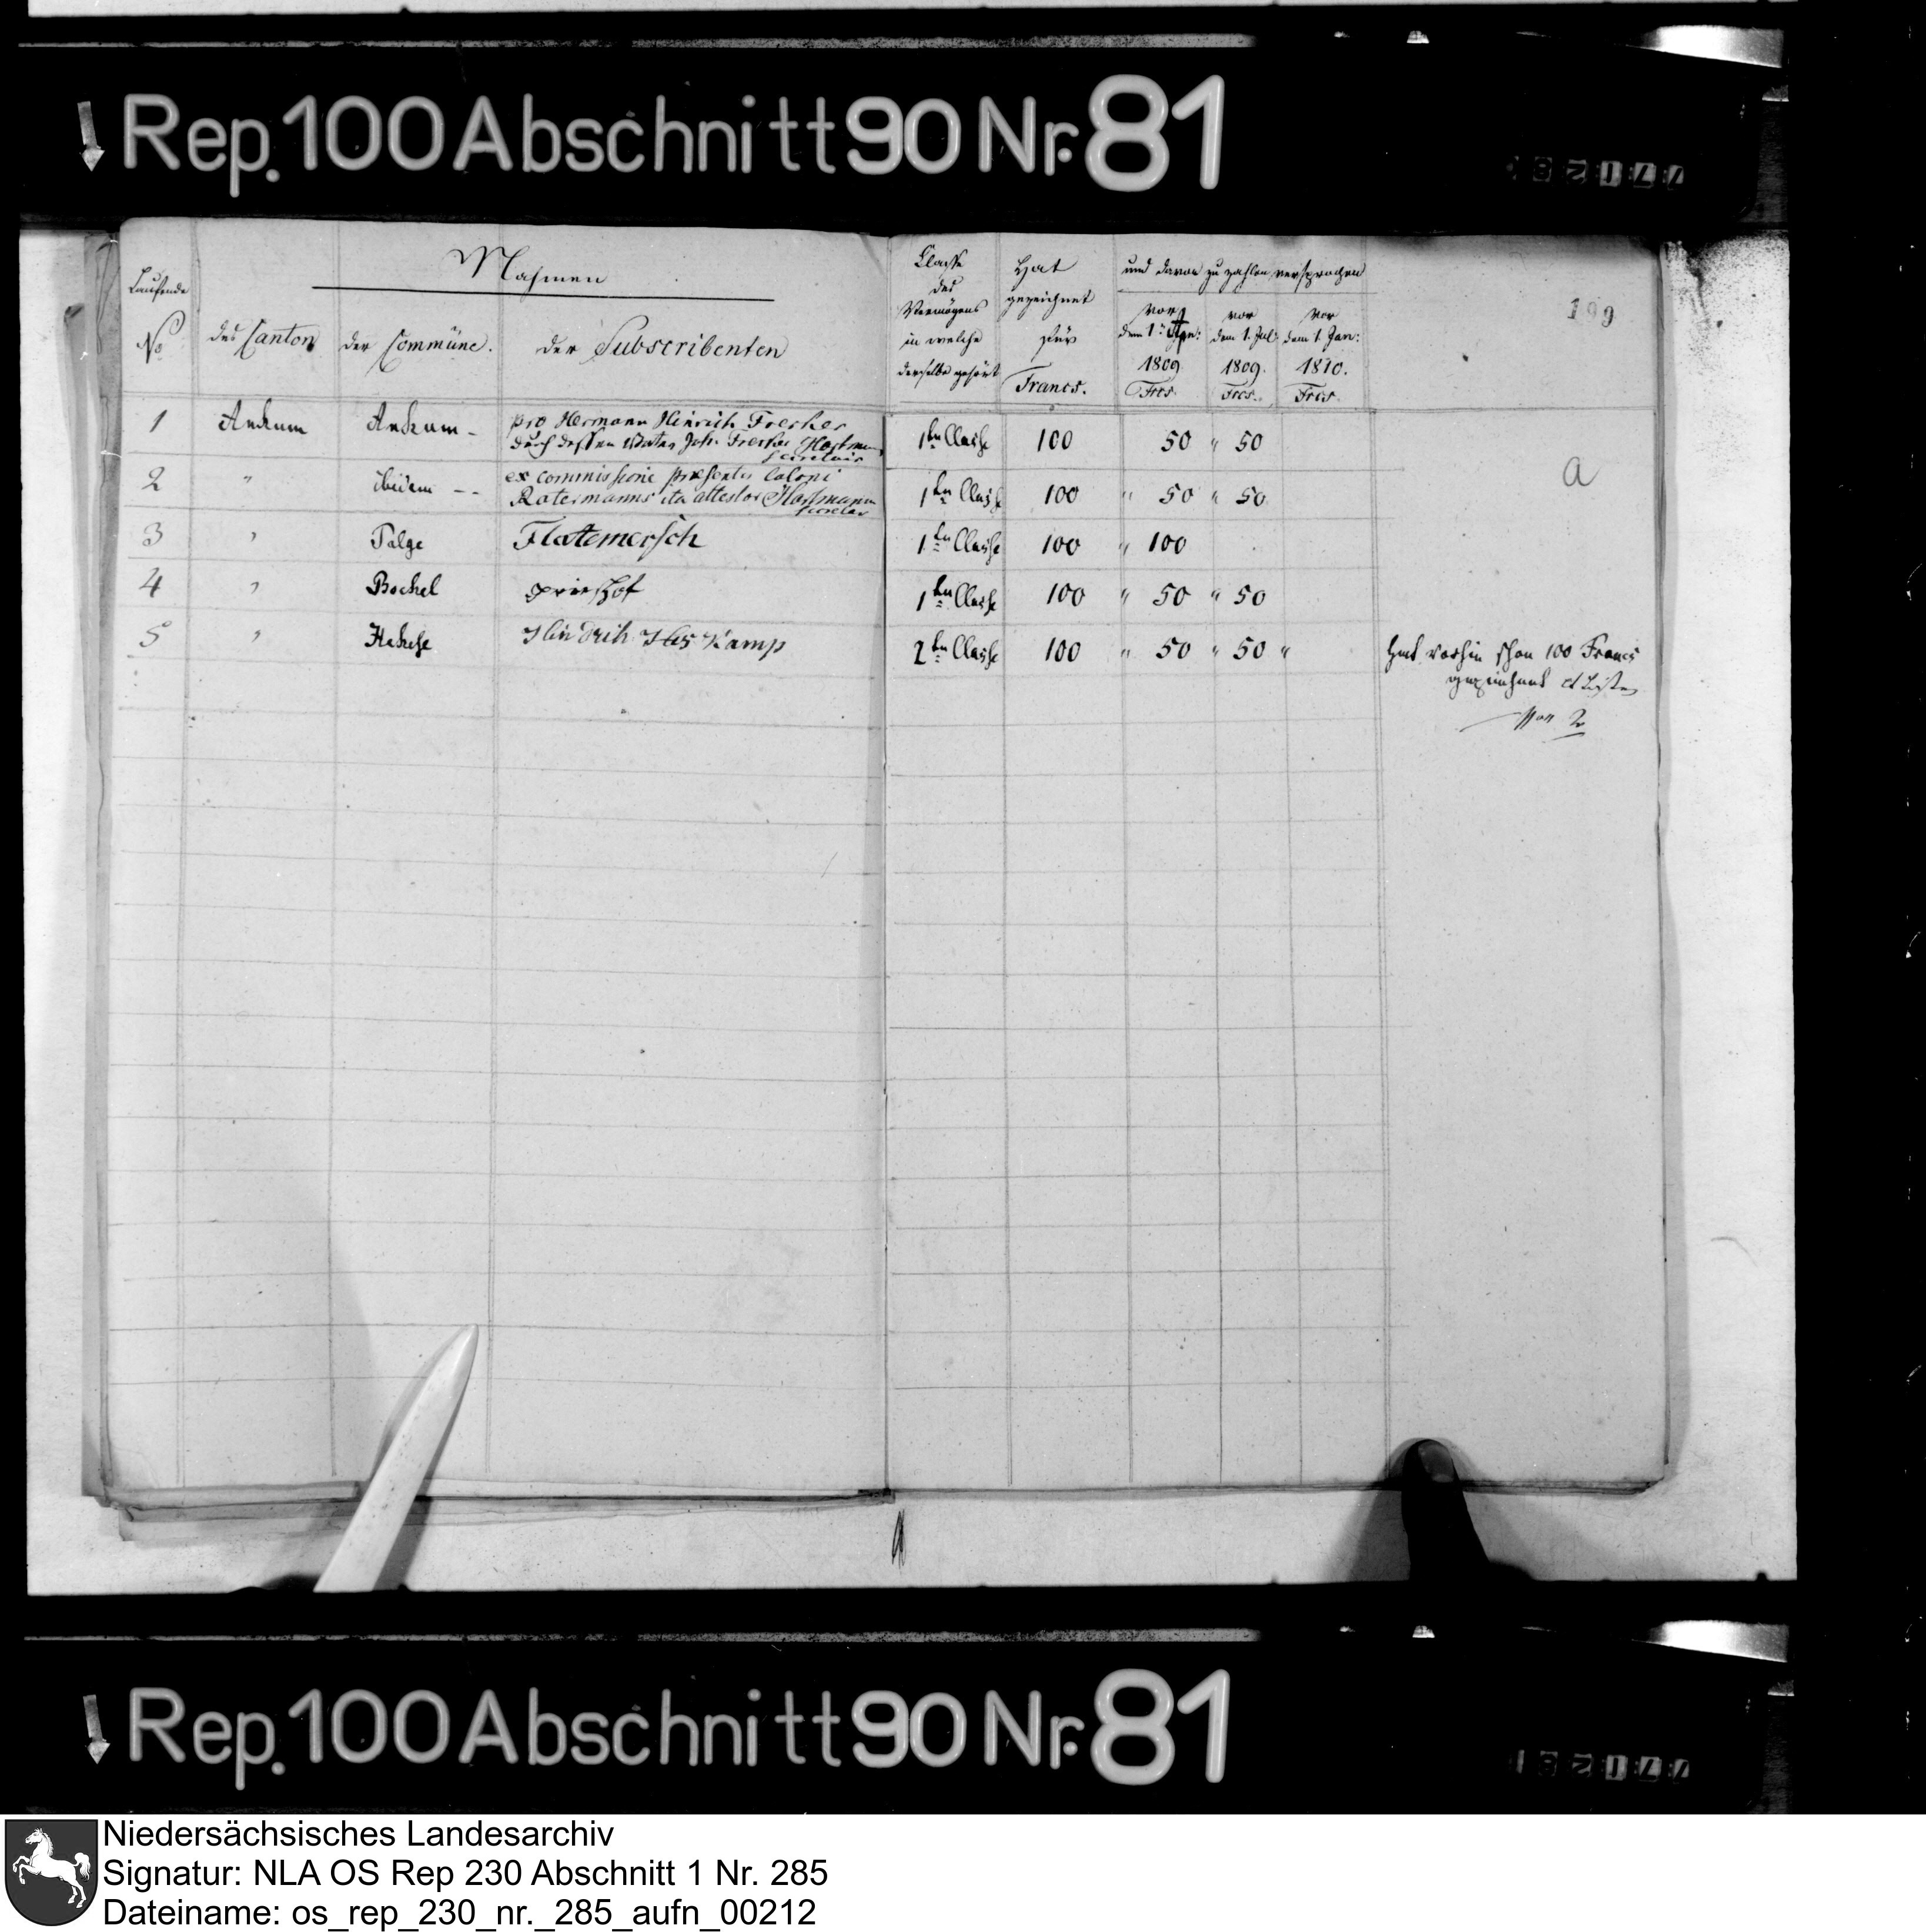 Rep. 100 Abschnitt 90 Nr. 81
Laufende
No
Nahmen
des Canton
der Commüne.
der Subscribenten
Classe
des
Vermögens
in welche
derselbe gehört
Hat
gezeichnet
für
Francs.
und davon zu zahlen versprochen
vor
dem 1. Apr:
1809
Frcs.
vor
dem 1. Jul:
1809.
Frcs.
vor
dem 1. Jan:
1810.
Frcs.
199
1 Ankum Ankum - pro Hermann Hinrich Frerker
durch dessen Vater Joh. Frerker Hartmann
secretair
1ten Classe 100 50 " 50
a
2 " ibidem -- ex commissione praesentis Coloni
Ratermanns ita attestor Hartmann
secretar
1ten Classe 100 " 50 " 50
3 " Talge Flatemersch 1ten Classe 100 " 100
4 " Bockel 1ten Classe 100 " 50 " 50
5 " Hekese Kamp 2ten Classe 100 " 50 " 50 "
hat vorhin schon 100 Francs
gezeichnet
2
Rep. 100 Abschnitt 90 Nr. 81
Niedersächsisches Landesarchiv
Signatur: NLA OS Rep 230 Abschnitt 1 Nr. 285
Dateiname: os_rep_230_nr._285_aufn_00212